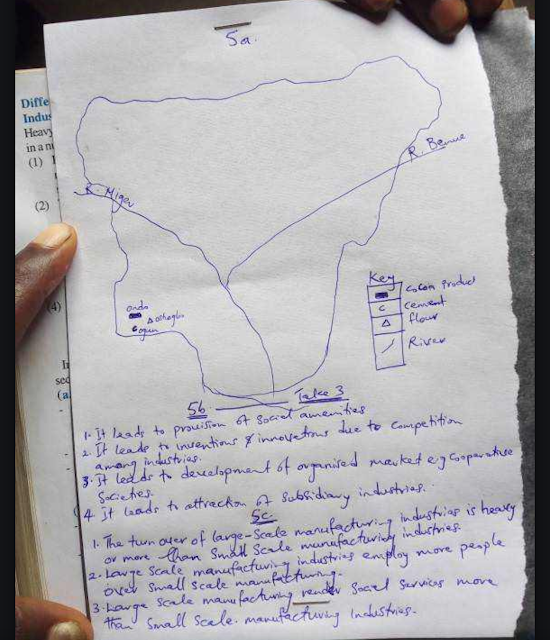 5a.
Diffe
Indus
Heavy
in a n
(1)
(2)
(4)
sec
(a
R. Niger
R. Benue
Ondo
Ogun
Key
Cocoa Product
Cement
flour
River
5b Take 3
1. It leads to provision of social amenities
2. It leads to inventions & innovations due to competition
among industries.
3. It leads to development of organised market e.g cooperative
Societies.
4 It leads to attraction of subsidiary industries.
5c.
1. The turn over of large-scale manufacturing industries is heavy
or more than Small Scale manufacturing industries.
2. Large Scale manufacturing industries employ more people
over Small Scale manufacturing.
3. Large Scale manufacturing render Social Services more
than Small Scale manufacturing Industries.